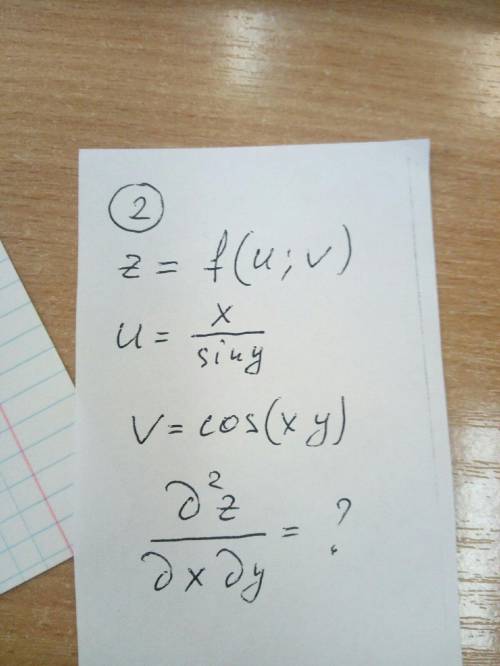 2
z = f(u; v)
u = x / sin y
v = cos(x y)
∂²z / ∂x ∂y = ?